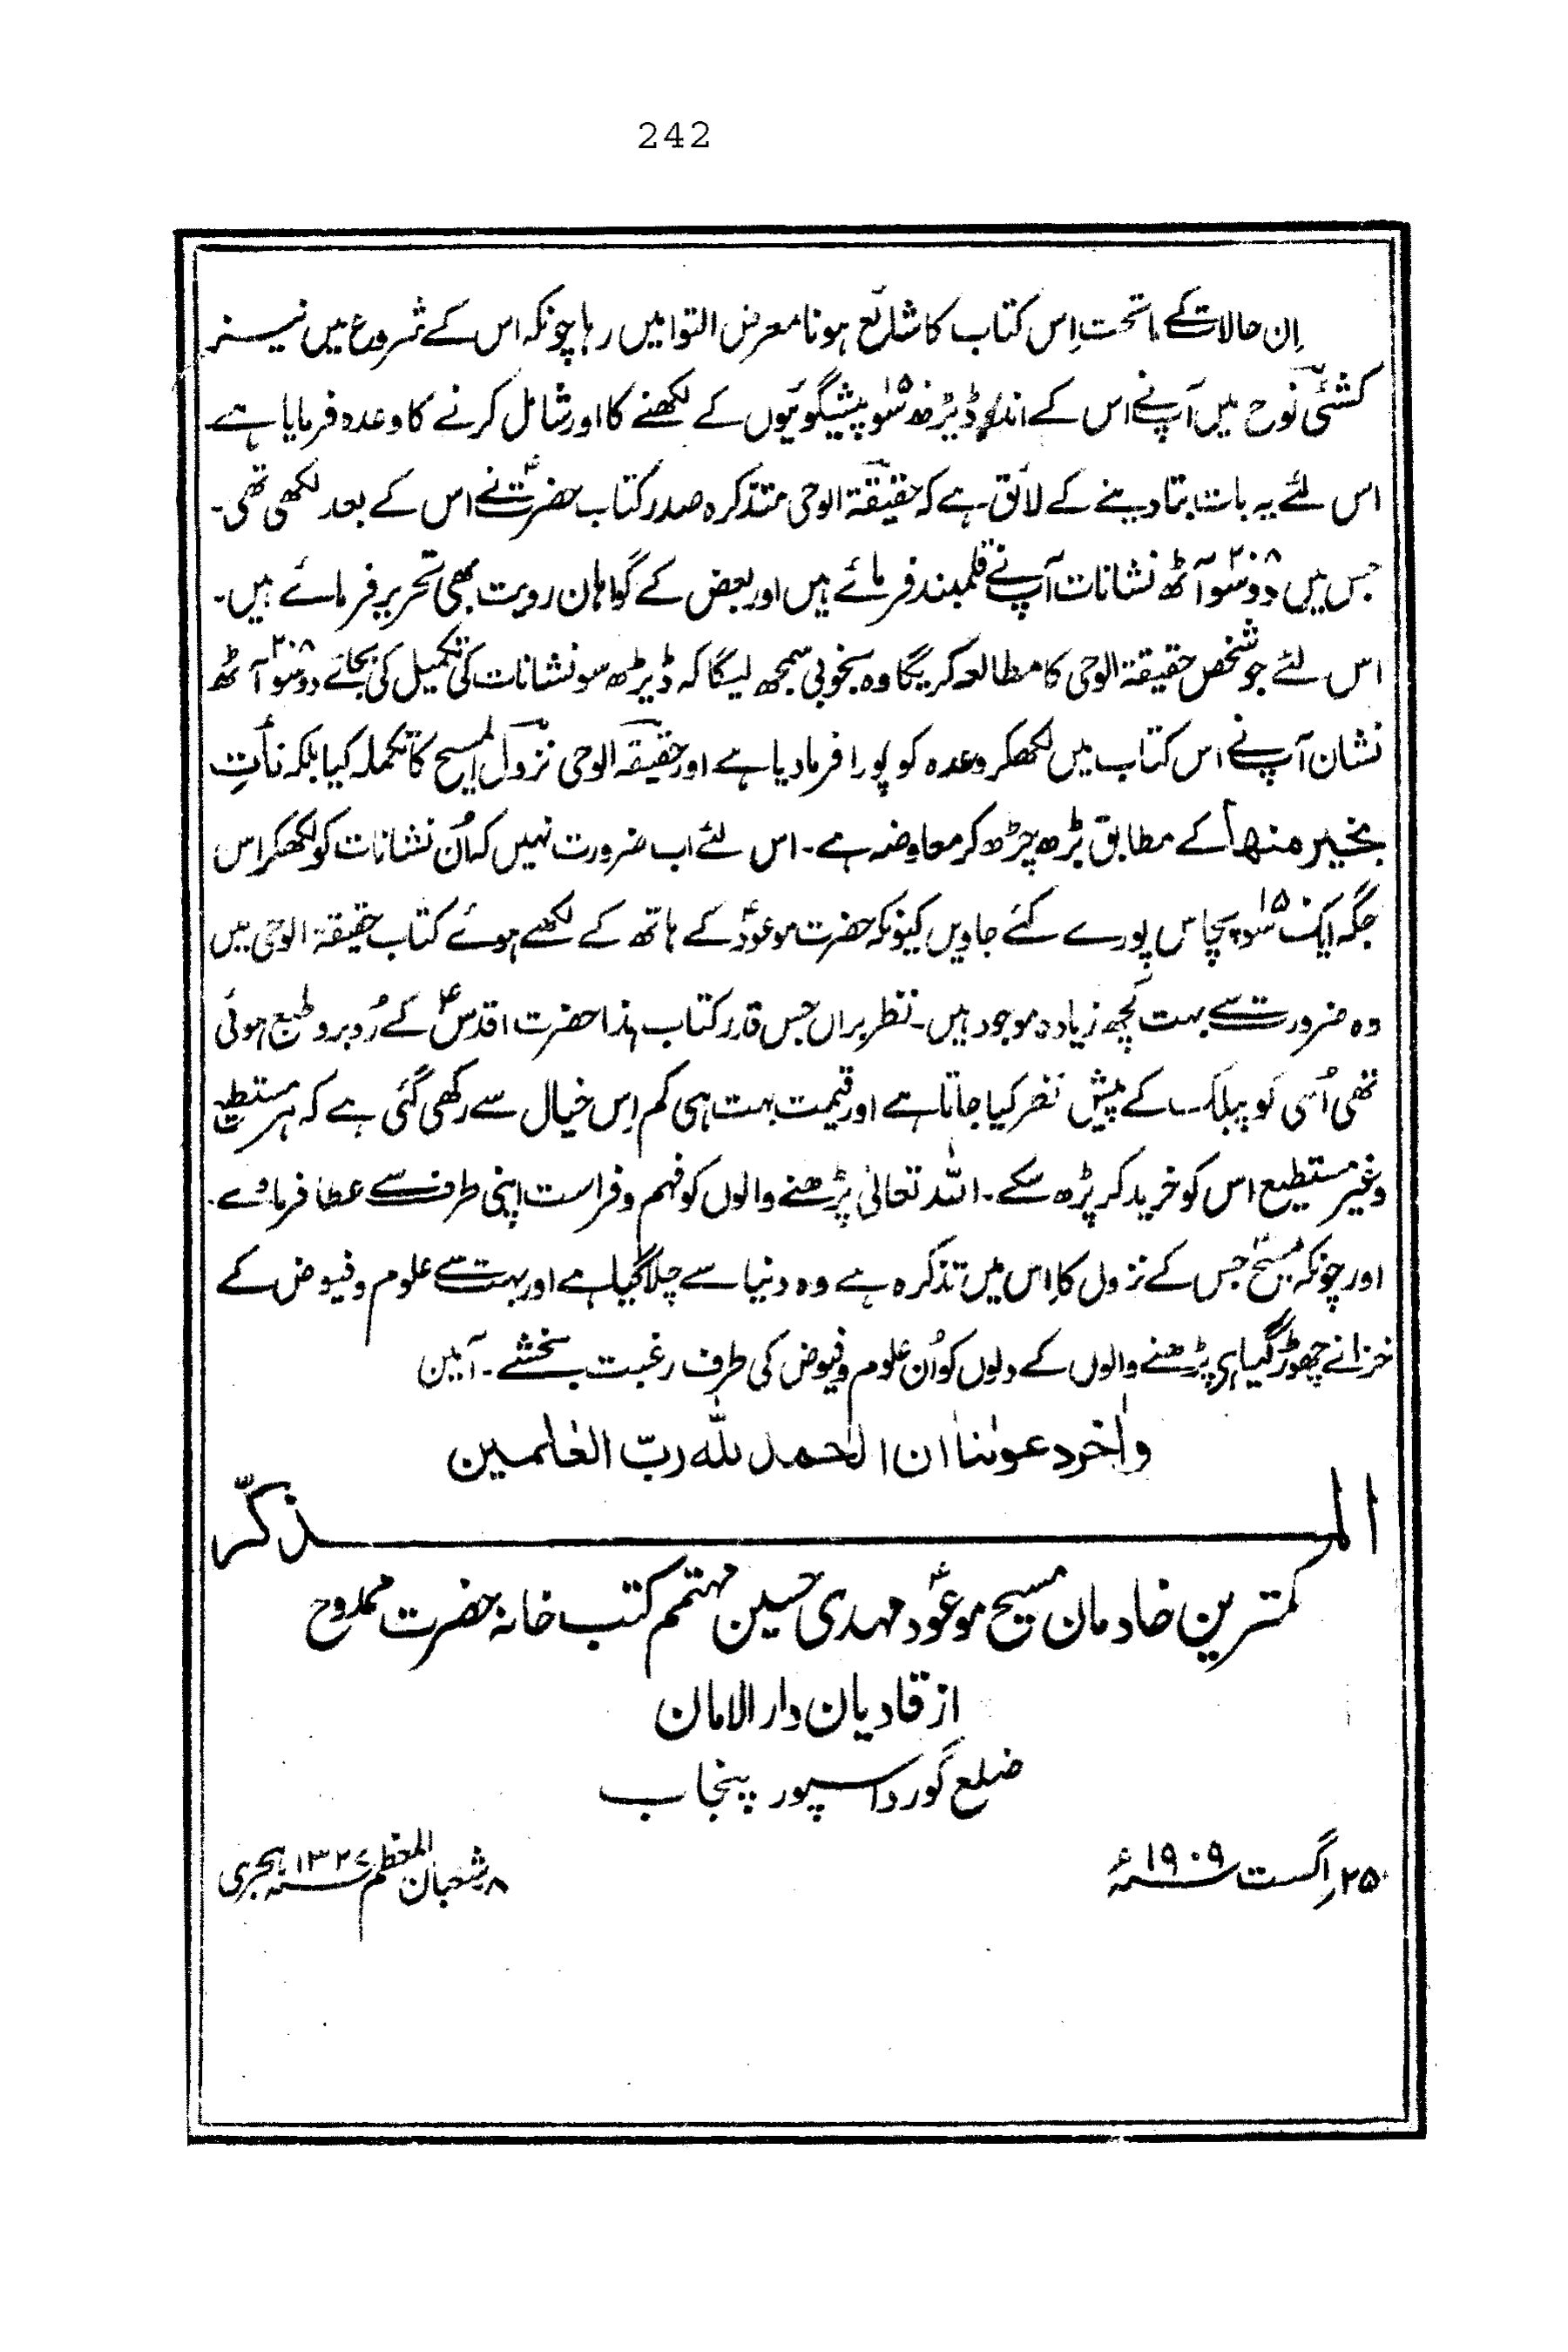 242
اِن حالات کے ماتحت اِس کتاب کا شائع ہونا معرض التوا میں رہا چونکہ اس کے شروع میں نیز
کشتیٔ نوح میں آپ نے اس کے اندر ڈیڑھ سو ۱۵۰ پیشگوئیوں کے لکھنے کا اور شامل کرنے کا وعدہ فرمایا ہے
اس لئے یہ بات بتا دینے کے لائق ہے کہ حقیقۃ الوحی متذکرہ صدر کتاب حضرتؑ نے اس کے بعد لکھی تھی۔
جس میں دو سو آٹھ ۲۰۸ نشانات آپ نے قلمبند فرمائے ہیں اور بعض کے گواہان رویت بھی تحریر فرمائے ہیں۔
اس لئے جو شخص حقیقۃ الوحی کا مطالعہ کریگا وہ بخوبی سمجھ لیگا کہ ڈیڑھ سو نشانات کی تکمیل کی بجائے دو سو ۲۰۸ آٹھ
نشان آپ نے اس کتاب میں لکھکر وعدہ کو پورا فرما دیا ہے اور حقیقۃ الوحی نزول المسیح کا تکملہ کیا بلکہ نأت
بخیر منھا کے مطابق بڑھ چڑھ کر معاوضہ ہے۔ اس لئے اب ضرورت نہیں کہ اُن نشانات کو لکھکر اس
جگہ ایک سو پچاس ۱۵۰ پورے کئے جاویں کیونکہ حضرت موعودؑ کے ہاتھ کے لکھے ہوئے کتاب حقیقۃ الوحی میں
وہ ضرورت سے بہت کچھ زیادہ موجود ہیں۔ نظر براں جس قدر کتاب ہذا حضرت اقدسؑ کے رُوبرو طبع ہوئی
تھی اُسی کو پبلک کے پیش نظر کیا جاتا ہے اور قیمت بہت ہی کم اِس خیال سے رکھی گئی ہے کہ ہر مستطیع
وغیر مستطیع اس کو خرید کر پڑھ سکے۔ اللہ تعالیٰ پڑھنے والوں کو فہم و فراست اپنی طرف سے عطا فرماوے۔
اور چونکہ مسیحؑ جس کے نزول کا اِس میں تذکرہ ہے وہ دنیا سے چلا گیا ہے اور بہت سے علوم و فیوض کے
خزانے چھوڑ گیا ہی پڑھنے والوں کے دلوں کو اُن علوم و فیوض کی طرف رغبت بخشے۔ آمین
واٰخر دعوٰنا ان الحمد للّٰہ ربّ العٰلمین
المذکّر
کمترین خادمان مسیح موعودؑ مہدی حسین مہتمم کتب خانہ حضرت ممدوح
از قادیان دار الامان
ضلع گورداسپور پنجاب
۲۵؍اگست ۱۹۰۹ء
۸؍شعبان المعظم ۱۳۲۷ ہجری